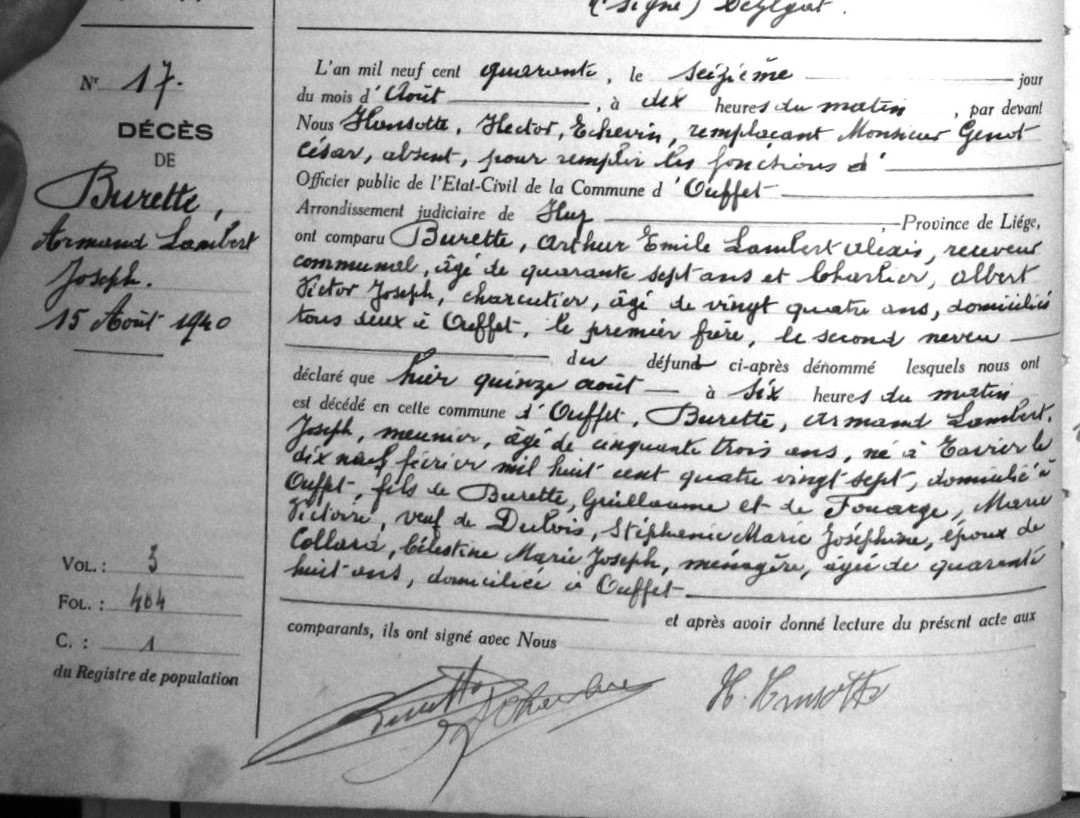 (Signé)
Nr 17.
DÉCÈS
DE
Burette,
Armand Lambert
Joseph.
15 Août 1940
VOL. : 3
FOL. : 404
C. : 1
du Registre de population
L'an mil neuf cent quarante, le seizième jour
du mois d'Août, à dix heures du matin, par devant
Nous Hansotte, Hector, Echevin, remplaçant Monsieur Genot
César, absent, pour remplir les fonctions d'
Officier public de l'Etat-Civil de la Commune d'Ouffet
Arrondissement judiciaire de Huy, Province de Liége,
ont comparu Burette, Arthur Emile Lambert Alexis, receveur
communal, âgé de quarante sept ans et Charlier, Albert
Victor Joseph, charcutier, âgé de vingt quatre ans, domiciliés
tous deux à Ouffet, le premier frère, le second neveu
du défund ci-après dénommé lesquels nous ont
déclaré que hier quinze août à six heures du matin
est décédé en cette commune d'Ouffet, Burette, Armand Lambert,
Joseph, meunier, âgé de cinquante trois ans, né à Tavier le
dix neuf février mil huit cent quatre vingt sept, domicilié à
Ouffet, fils de Burette, Guillaume et de Fouarge, Marie
Victoire, veuf de Dubois, Stéphanie Marie Joséphine, époux de
Collard, Célestine Marie Joseph, ménagère, âgée de quarante
huit ans, domiciliée à Ouffet
et après avoir donné lecture du présent acte aux
comparants, ils ont signé avec Nous
Burette A Charlier H. Hansotte